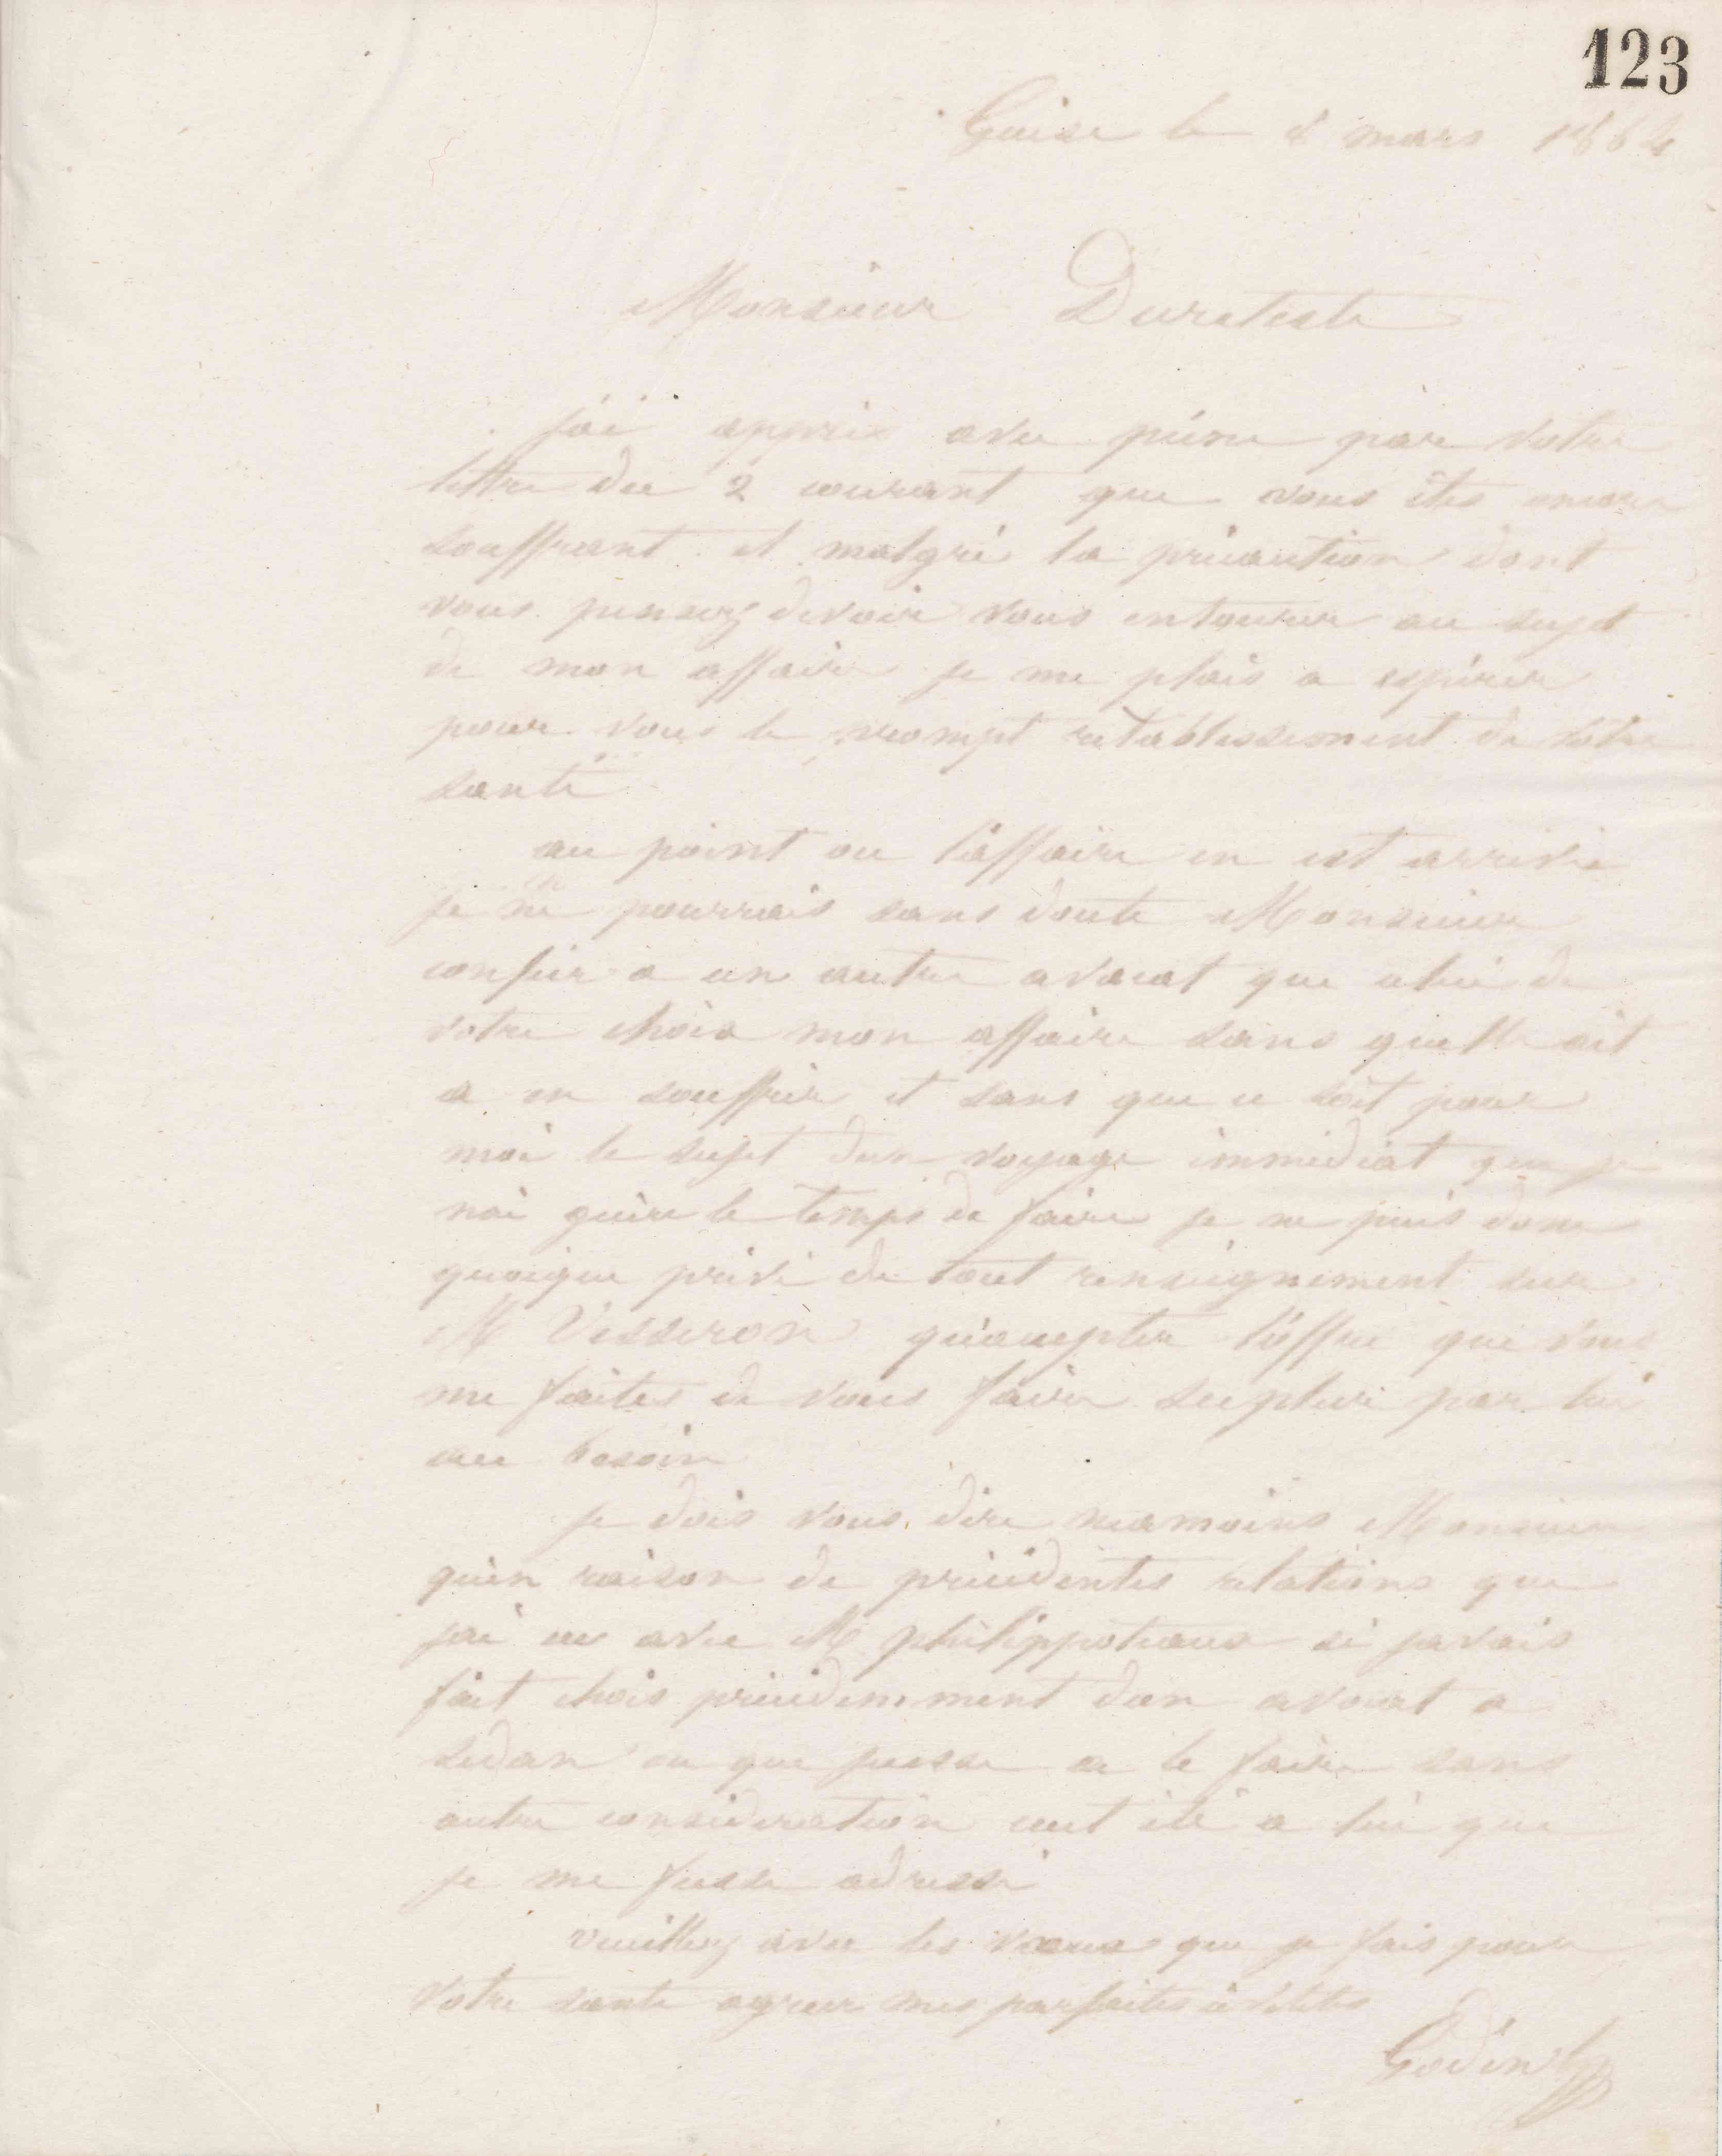 123
Guise le 8 mars 1864
Monsieur Dureteste
j'ai appris avec peine par votre
lettre du 2 courant que vous êtes encore
souffrant et malgré la précaution dont
vous pensez devoir vous entourer au sujet
de mon affaire je me plais a espérer
pour vous le prompt retablissement de votre
santé
au point ou l'affaire en est arrivée
je ne pourrais sans doute Monsieur
confier a un autre avocat que celui de
votre choix mon affaire sans quelle ait
a en souffrir et sans que ce soit pour
moi le sujet dun voyage immédiat que je
nai guère le temps de faire je ne puis donc
quoique privé de tout renseignement sur
M Vesseron qu'accepter l'offre que vous
me faites de vous faire supleer par lui
au besoin
je dois vous dire neamoins Monsieur
qu'en raison de précédentes relations que
jai eu avec M philippoteaux si javais
fait choix précédemment dun avocat a
sedan ou que jeusse a le faire sans
autre consideration ceut été a lui que
je me fusse adressé
veuillez avec les voeux que je fais pour
votre santé agreer mes parfaites civilités
Godin